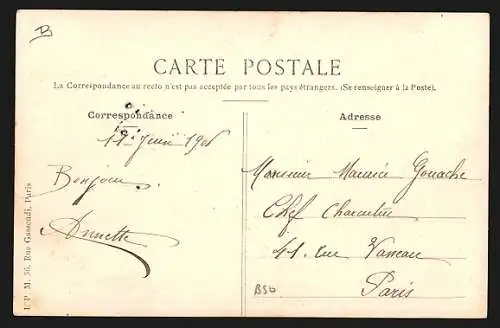 B
CARTE POSTALE
La Correspondance au recto n'est pas acceptée par tous les pays étrangers. (Se renseigner à la Poste).
Correspondance
11 Juin 1906
Bonjour.
Annette
Adresse
Monsieur Maurice Gouache
Chef Charcutier
41. rue Vaneau
Paris
B56
I. P. M. 56, Rue Gassendi, Paris